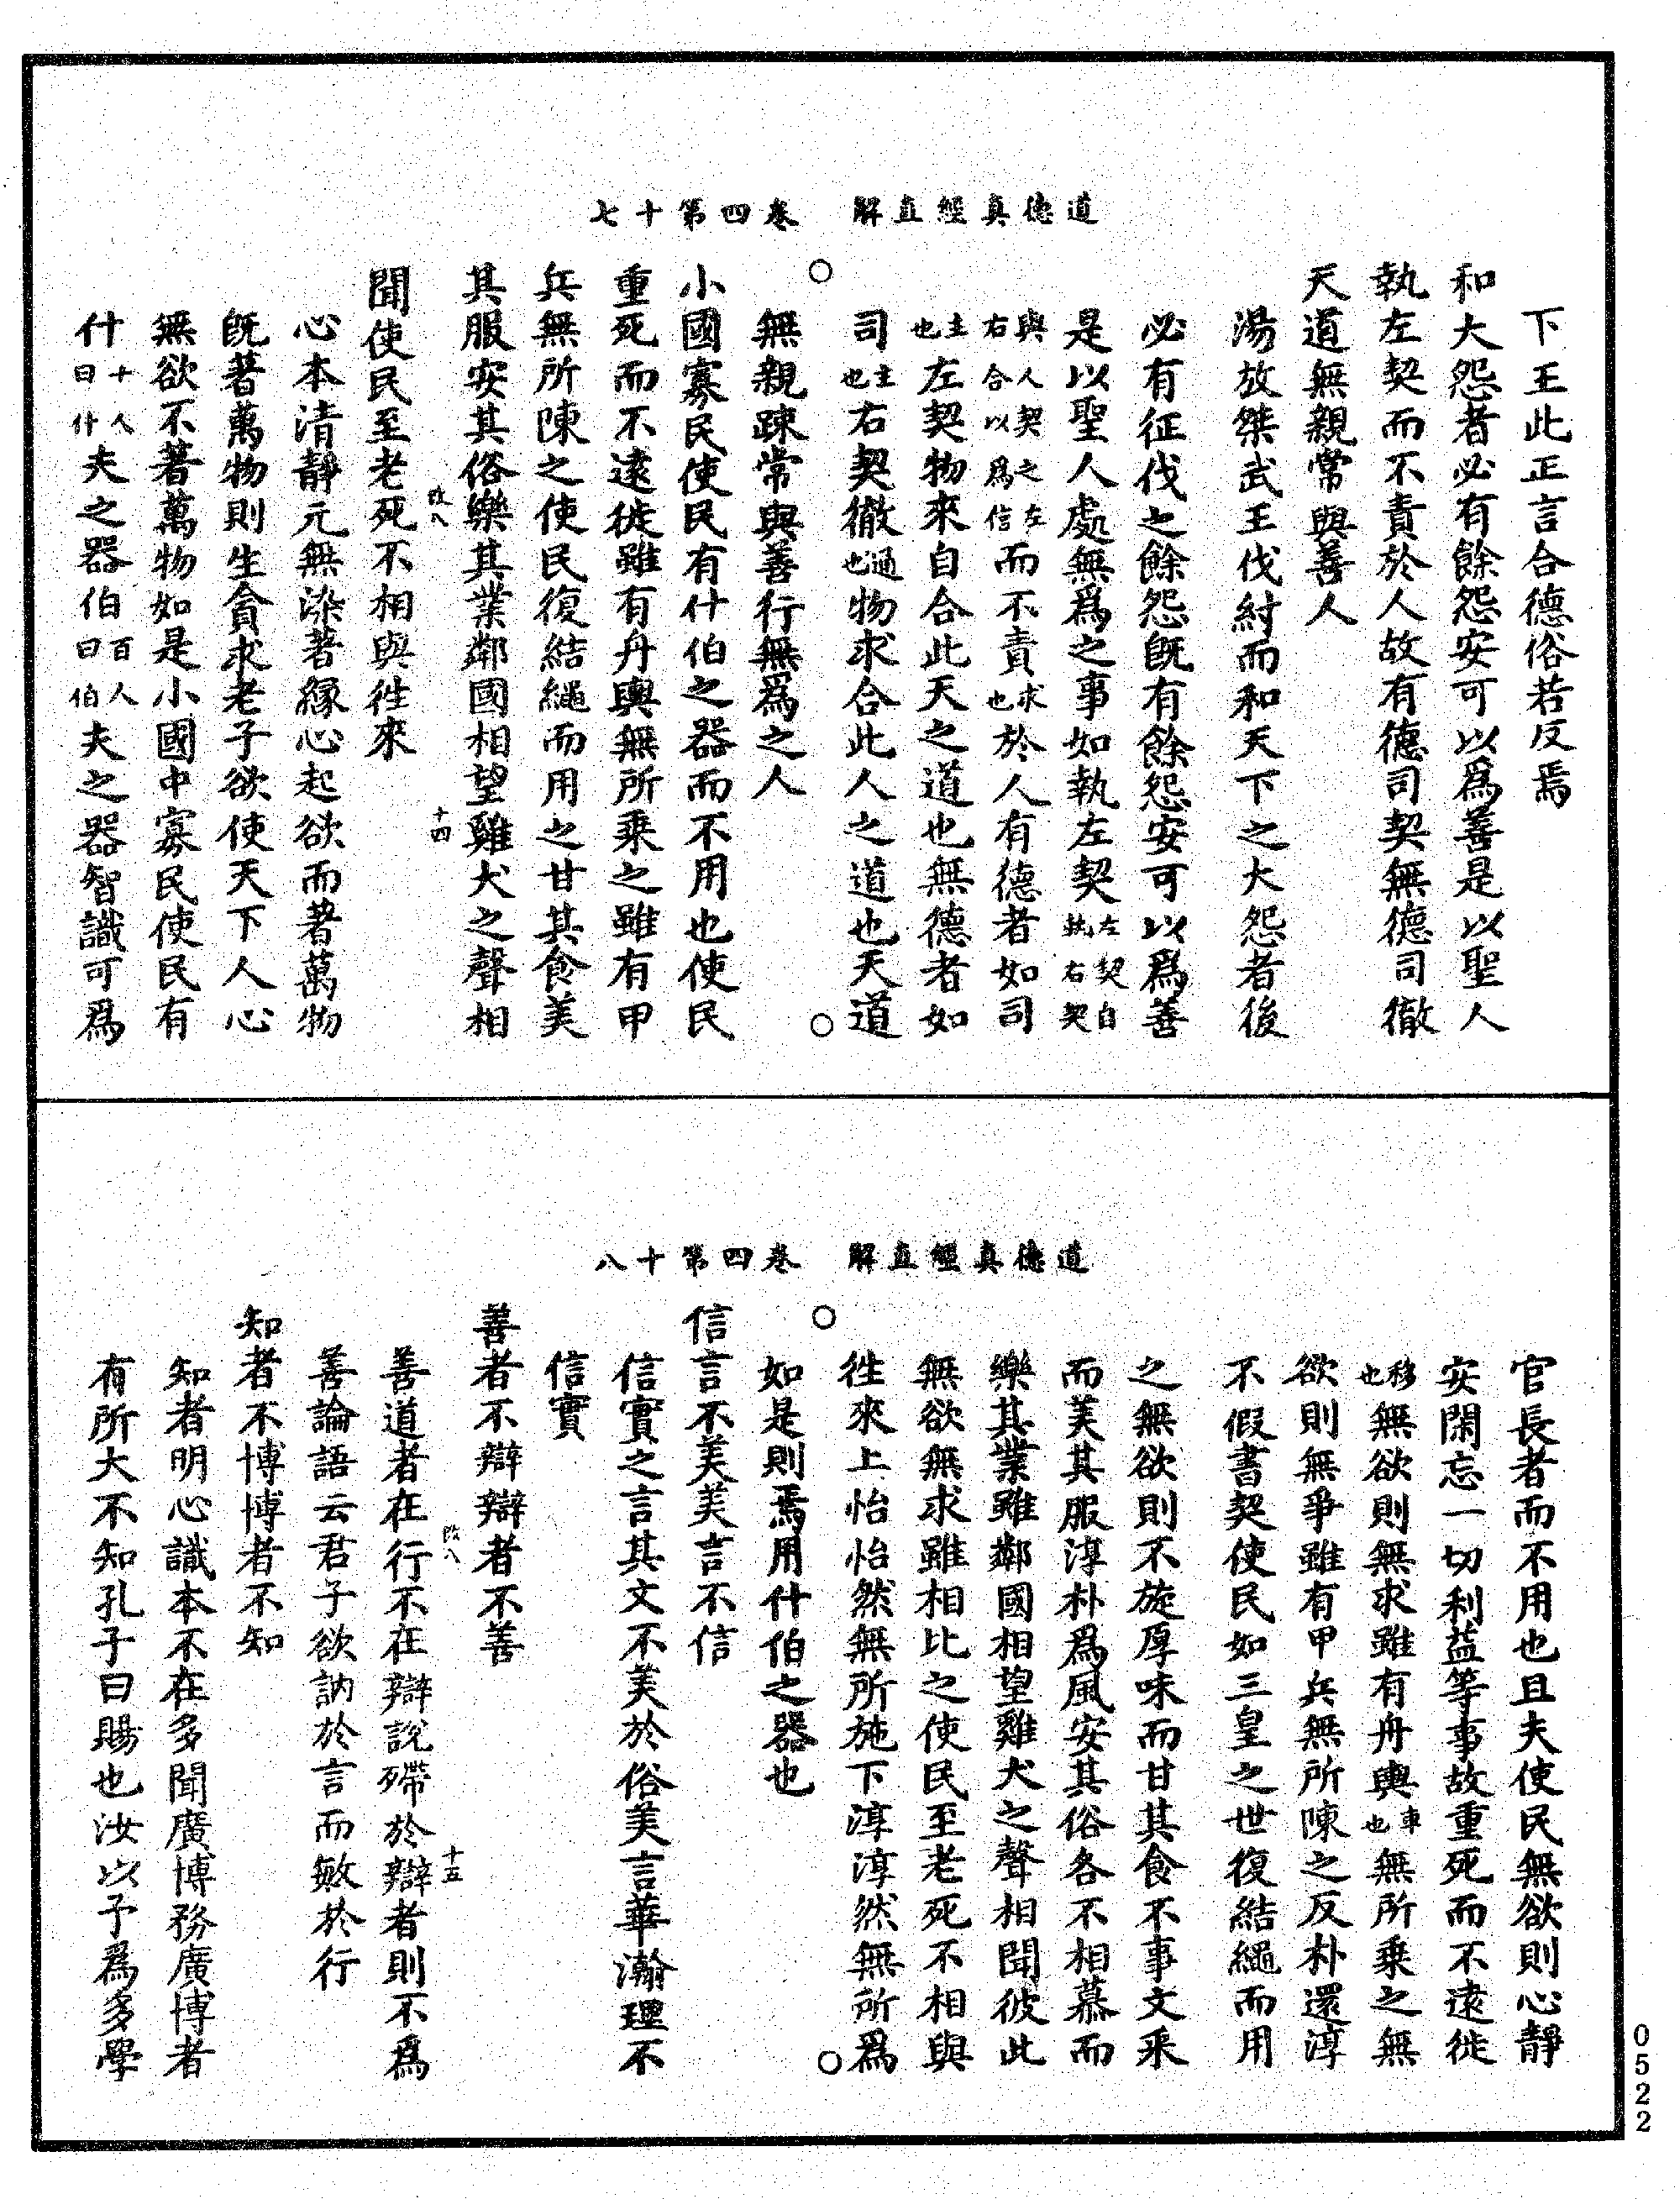 道德真經直解　卷四第十七
下王此正言合德俗若反焉
和大怨者必有餘怨安可以爲善是以聖人
執左契而不責於人故有德司契無德司徹
天道無親常與善人
湯放桀武王伐紂而和天下之大怨者後
必有征伐之餘怨旣有餘怨安可以爲善
是以聖人處無爲之事如執左契左契自執右契
與人契之左右合以爲信而不責求也於人有德者如司
主也左契物來自合此天之道也無德者如
司主也右契徹通也物求合此人之道也天道
無親踈常與善行無爲之人
小國寡民使民有什伯之器而不用也使民
重死而不遠徙雖有舟輿無所乘之雖有甲
兵無所陳之使民復結繩而用之甘其食美
其服安其俗樂其業鄰國相望雞犬之聲相
改八　十四
聞使民至老死不相與徃來
心本清靜元無染著緣心起欲而著萬物
旣著萬物則生貪求老子欲使天下人心
無欲不著萬物如是小國中寡民使民有
什十人曰什夫之器伯百人曰伯夫之器智識可爲
道德真經直解　卷四第十八
官長者而不用也且夫使民無欲則心靜
安閑忘一切利益等事故重死而不遠徙
移也無欲則無求雖有舟輿車也無所乘之無
欲則無爭雖有甲兵無所陳之反朴還淳
不假書契使民如三皇之世復結繩而用
之無欲則不旋厚味而甘其食不事文采
而美其服淳朴爲風安其俗各不相慕而
樂其業雖鄰國相望雞犬之聲相聞彼此
無欲無求雖相比之使民至老死不相與
徃來上怡怡然無所施下淳淳然無所爲
如是則焉用什伯之器也
信言不美美言不信
信實之言其文不美於俗美言華瀚理不
信實
善者不辯辯者不善
改八　十五
善道者在行不在辯說殢於辯者則不爲
善論語云君子欲訥於言而敏於行
知者不博博者不知
知者明心識本不在多聞廣博務廣博者
有所大不知孔子曰賜也汝以予爲多學
0522